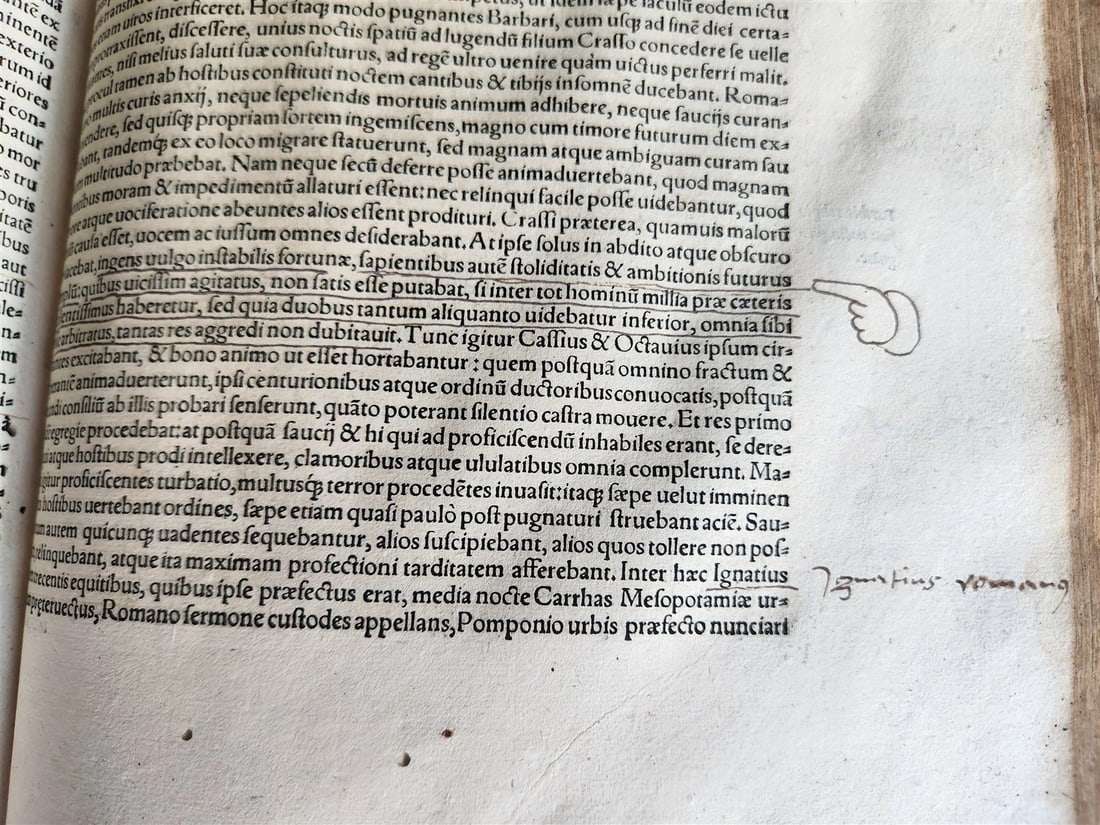 eam uiros interficeret. Hoc itaqꝫ modo pugnantes Barbari, cum uſqꝫ ad finē diei certa=
protraxiſſent, diſceſſere, unius noctis ſpatiū ad lugendū filium Craſſo concedere ſe uelle
nisi melius ſaluti ſuæ conſulturus, ad regē ultro uenire quàm uictus perferri malit.
procul tamen ab hoſtibus conſtituti noctem cantibus & tibijs inſomnē ducebant. Roma=
multis curis anxij, neque ſepeliendis mortuis animum adhibere, neque ſaucijs curan=
ſed quiſqꝫ propriam ſortem ingemiſcens, magno cum timore futurum diem ex=
tandemqꝫ ex eo loco migrare ſtatuerunt, ſed magnam atque ambiguam curam ſau
multitudo præbebat. Nam neque ſecū deferre poſſe animaduertebant, quod magnam
moram & impedimentū allaturi eſſent: nec relinqui facile poſſe uidebantur, quod
atque uociferatione abeuntes alios eſſent prodituri. Craſſi præterea, quamuis malorū
cauſa eſſet, uocem ac iuſſum omnes deſiderabant. At ipſe ſolus in abdito atque obſcuro
ingens uulgo inſtabilis fortunæ, ſapientibus autē ſtoliditatis & ambitionis futurus
quibus uiciſſim agitatus, non ſatis eſſe putabat, ſi inter tot hominū millia præ cæteris
haberetur, ſed quia duobus tantum aliquanto uidebatur inferior, omnia ſibi
arbitratus, tantas res aggredi non dubitauit. Tunc igitur Caſſius & Octauius ipſum cir=
excitabant, & bono animo ut eſſet hortabantur: quem poſtquā omnino fractum &
animaduerterunt, ipſi centurionibus atque ordinū ductoribus conuocatis, poſtquā
conſiliū ab illis probari ſenſerunt, quāto poterant ſilentio caſtra mouere. Et res primo
egregie procedebat: at poſtquā ſaucij & hi qui ad proficiſcendū inhabiles erant, ſe dere=
atque hoſtibus prodi intellexere, clamoribus atque ululatibus omnia complerunt. Ma=
proficiſcentes turbatio, multusqꝫ terror procedētes inuaſit: itaqꝫ ſæpe uelut imminen
hoſtibus uertebant ordines, ſæpe etiam quaſi paulò poſt pugnaturi ſtruebant aciē. Sau=
autem quicunqꝫ uadentes ſequebantur, alios ſuſcipiebant, alios quos tollere non poſ=
relinquebant, atque ita maximam profectioni tarditatem afferebant. Inter hæc Ignatius
equitibus, quibus ipſe præfectus erat, media nocte Carrhas Meſopotamiæ ur=
Romano ſermone cuſtodes appellans, Pomponio urbis præfecto nunciari
Ignatius romanus